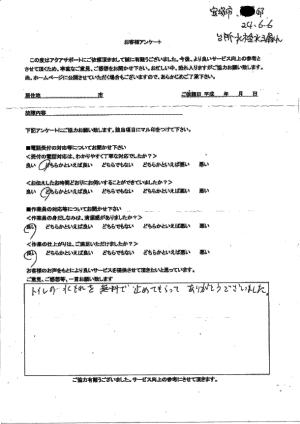 宝塚市 邸
24-6-6
台所水栓水漏れ
お客様アンケート
この度はアクアサポートにご依頼頂きまして誠に有難うございました。今後、より良いサービス向上の参考と
させて頂くため、率直なご意見、ご感想をお聞かせ下さい。お忙しい中、恐れ入りますがご協力お願い致します。
尚、ホームページに公開させていただく場合もございますので、あらかじめご了承下さい。
居住地 市 ご依頼日 平成 年 月 日
故障内容
下記アンケートにご協力お願い致します。該当項目にマル印をつけて下さい。
■電話受付の対応等についてお聞かせ下さい
<受付の電話対応は、わかりやすく丁寧な対応でしたか?>
良い どちらかといえば良い どちらでもない どちらかといえば悪い 悪い
<お伝えしたお時間どおりにお伺いすることができていましたか?>
良い どちらかといえば良い どちらでもない どちらかといえば悪い 悪い
■作業員の対応等についてお聞かせ下さい
<作業員の身だしなみは、清潔感がありましたか?>
良い どちらかといえば良い どちらでもない どちらかといえば悪い 悪い
<作業の仕上がりは、ご満足いただけましたか?>
良い どちらかといえば良い どちらでもない どちらかといえば悪い 悪い
お客様のお声をもとにより良いサービスを提供させて頂きたいと思っています。
ご意見、ご感想等、一言お願い致します
トイレの水もれを無料で止めてもらってありがとうございました。
ご協力有難うございました。サービス向上の参考にさせて頂きます。